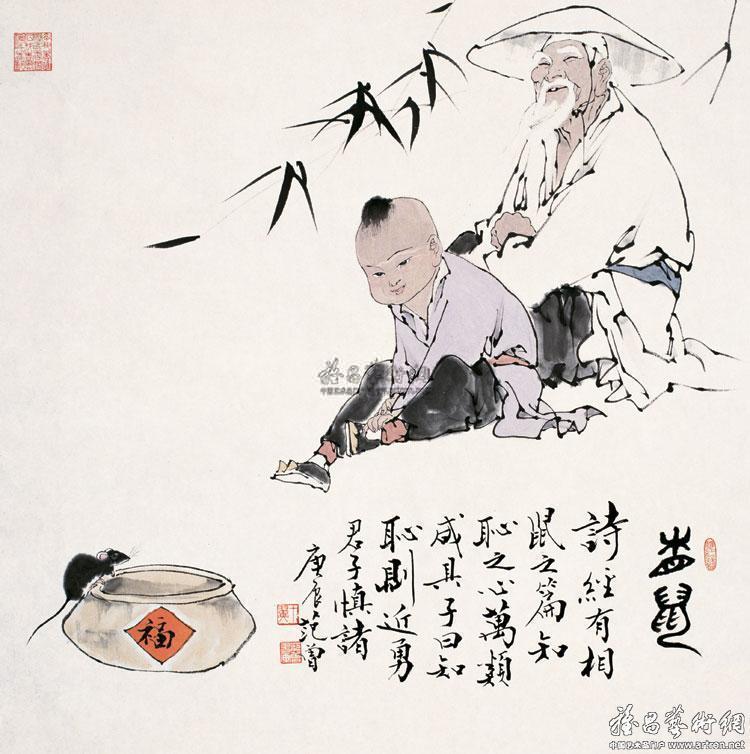 相鼠
詩經有相
鼠之篇知
恥之心萬類
咸具子曰知
恥則近勇
君子慎諸
庚辰范曾
福
雅昌藝術網
雅昌藝術網
中国艺术品门户 www.artron.net